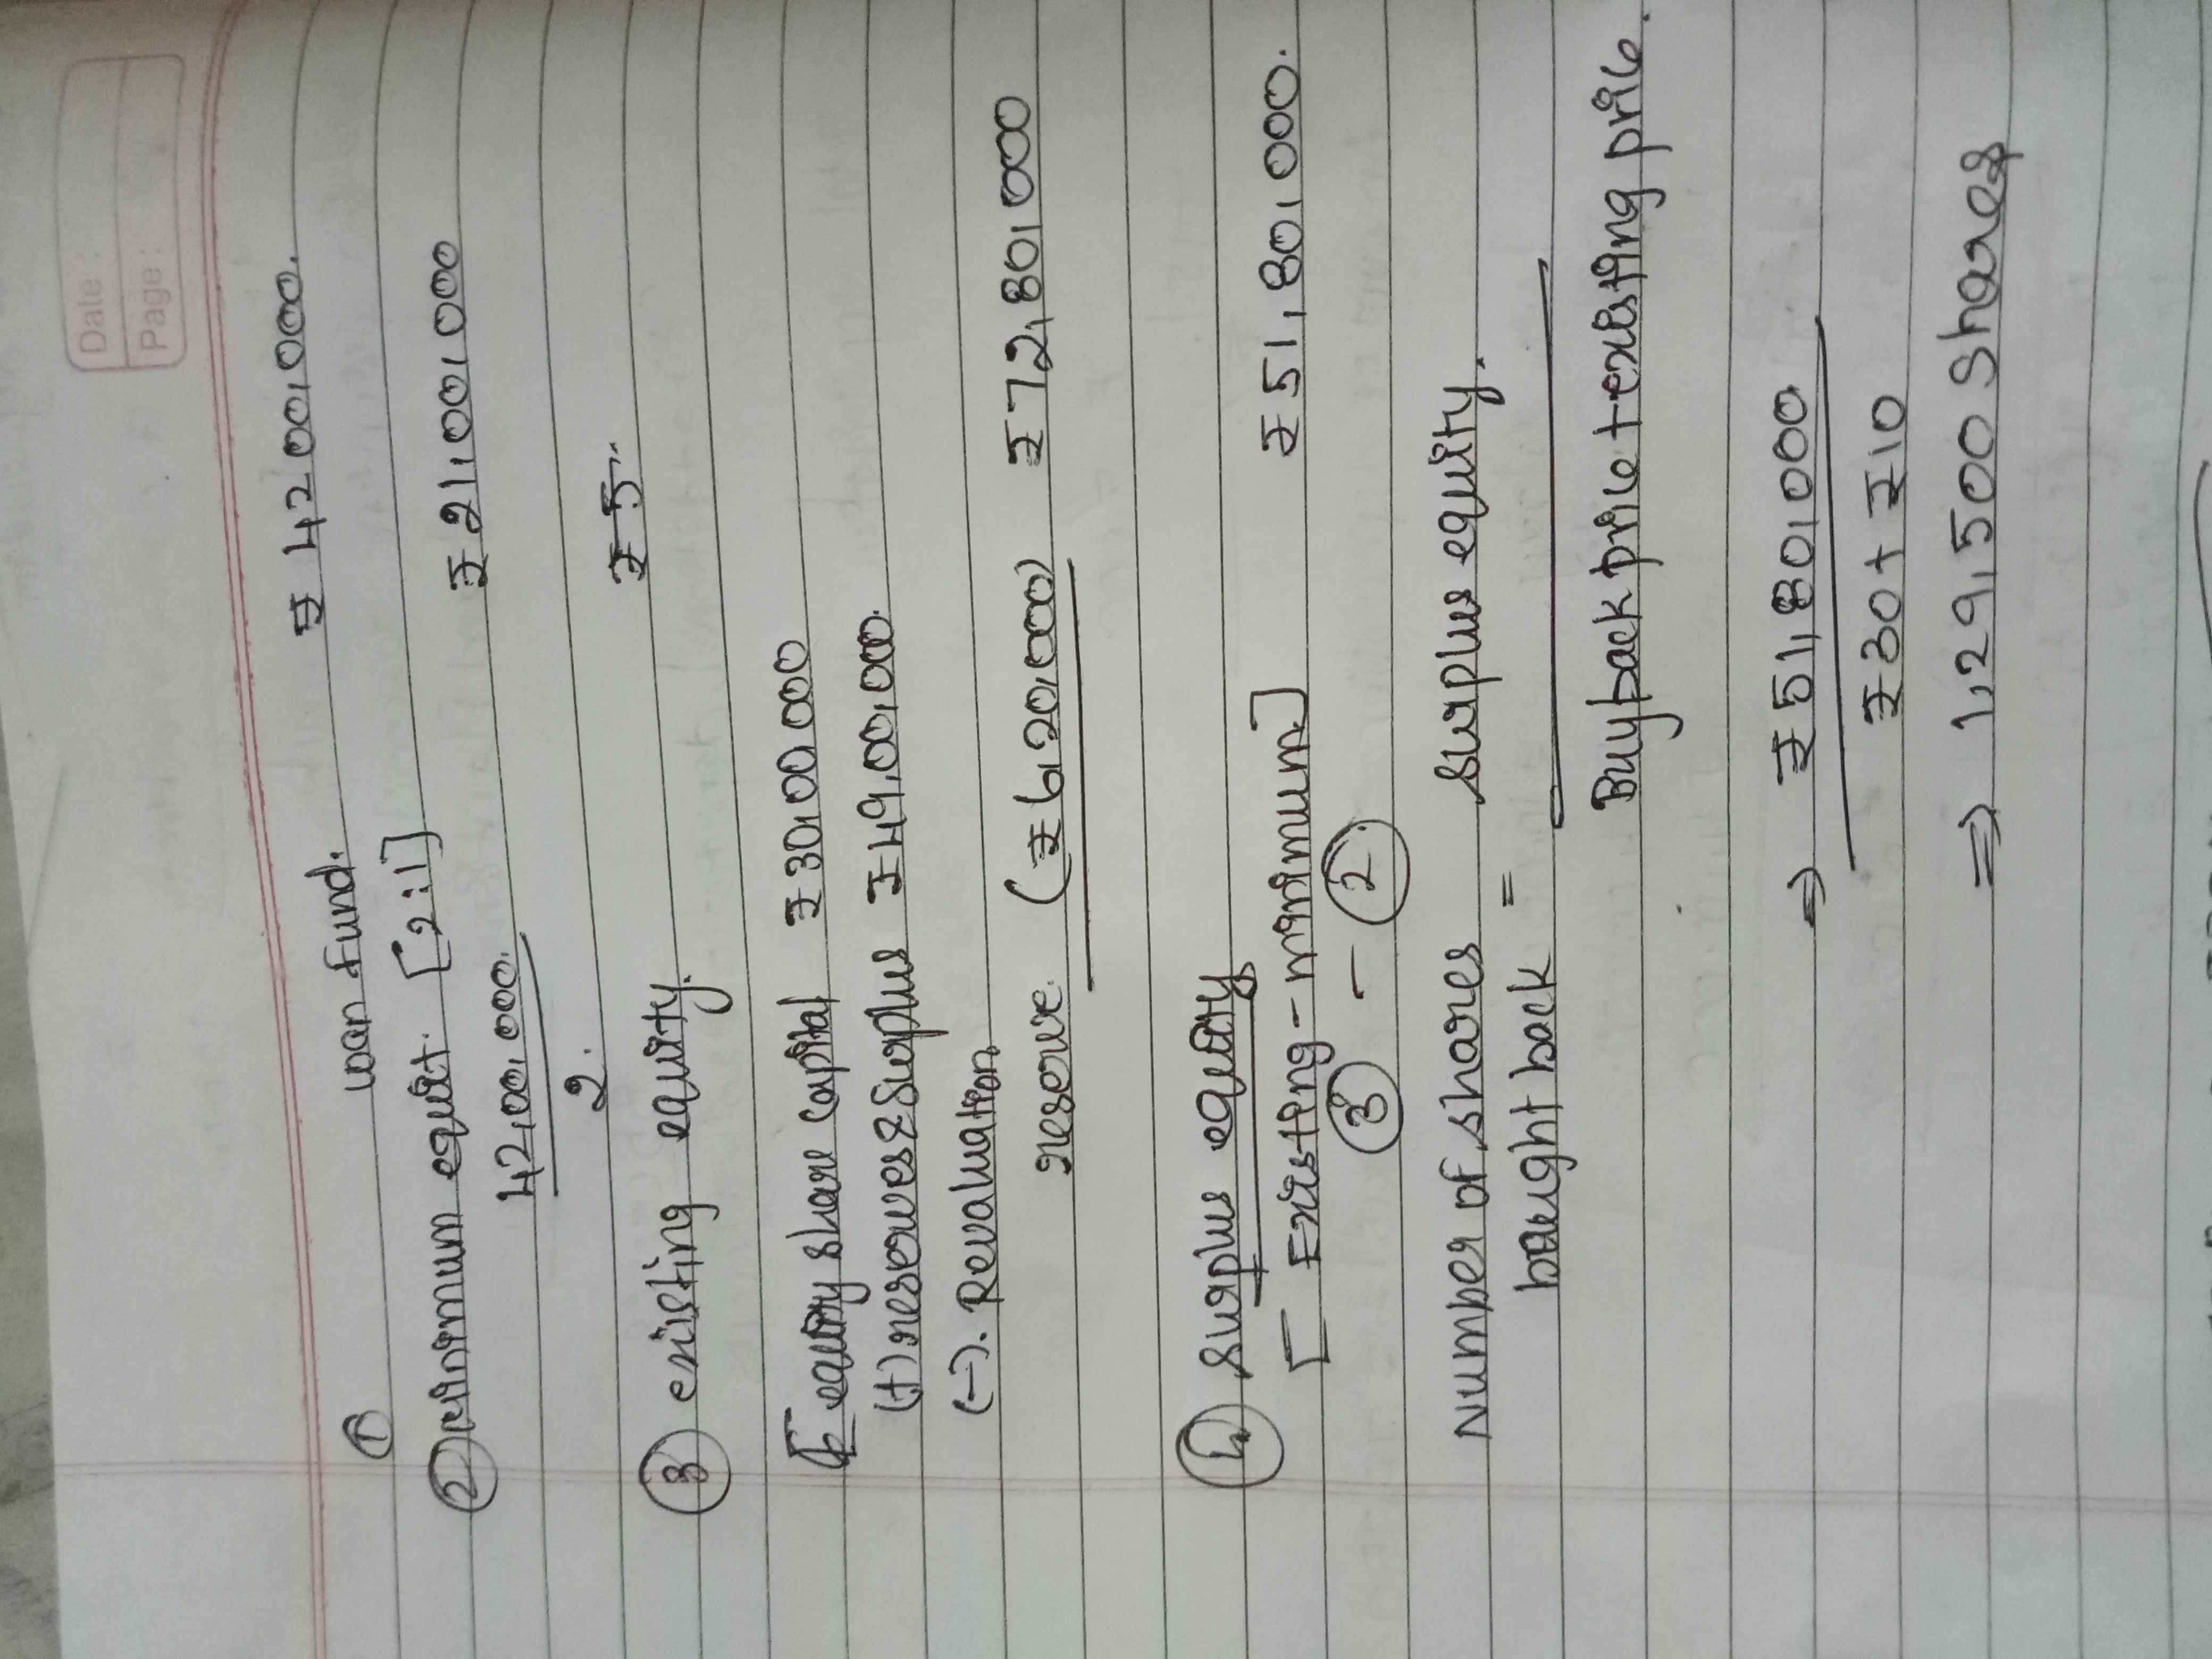 Date :
Page :
① loan fund. ₹ 42,00,000.
② minimum equit. [2:1] ₹ 21,00,000
42,00,000.
2.
₹ 5..
③ existing equity.
[ equity share capital ₹ 30,00,000
(+) reserves & surplus ₹ 49,00,000.
(-). Revaluation
reserve. (₹ 6,20,000) ₹ 72,80,000
④ surplus equity ₹ 51,80,000.
[Existing - minimum]
③ - ②
Number of shares surplus equity.
baught back =
Buyback price + existing price.
⇒ ₹ 51,80,000
₹ 30 + ₹ 10
⇒ 1,29,500 shares